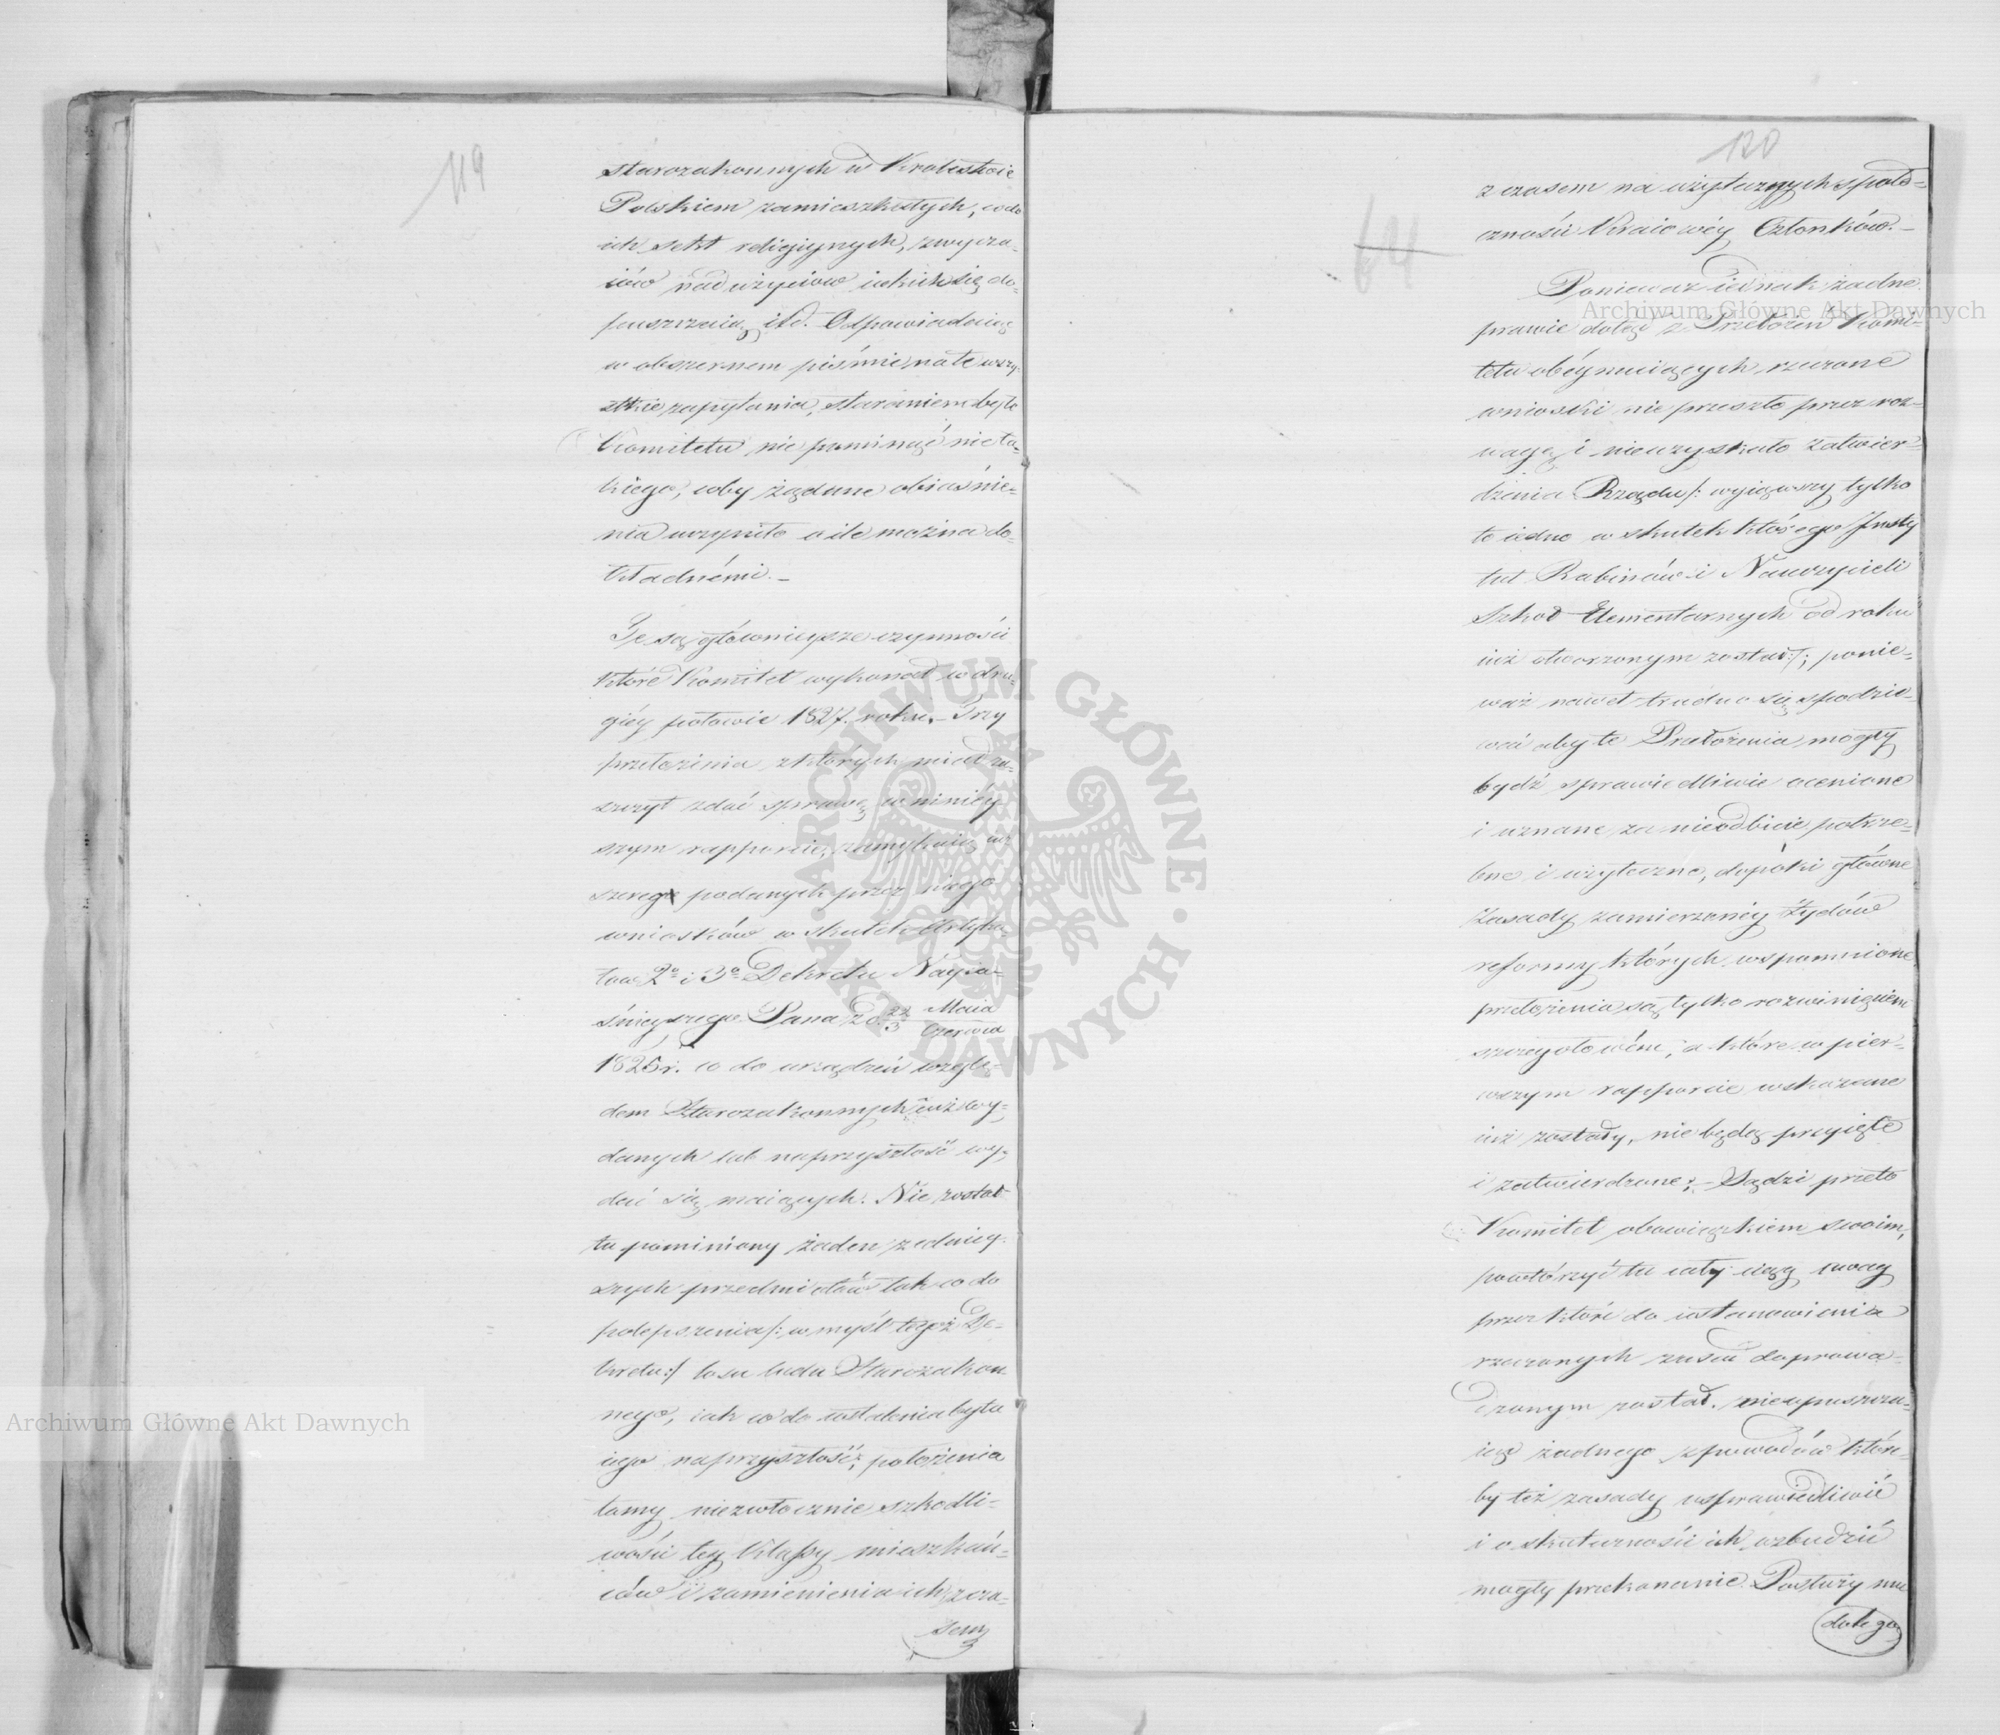 119
starozakonnych w Krolestwie
Polskiem zamieszkałych, co do
ich sekt religiynych, zwycza-
iów nadużyciów iakich się do-
puszczaią itd. Odpowiadaiąc
w obszernem piśmie na te wszy-
stkie zapytania, staraniem było
Komitetu nie pominąć nic ta-
kiego, coby żądane obiaśnie-
nia uczyniło o ile można do-
kładnémi. –
Te są głównieysze czynności
które Komitet wykonał w dru-
giéy połowie 1827. roku. – Trzy
przełożenia z których miał za-
szczyt zdać sprawę w niniéy-
szym rapporcie, zamykaią
szereg podanych przez niego
wniosków w skutek Artyku-
łów 2º i 3º Dekretu Nayia-
śnieyszego Pana z d. 22 Maia
3 Czerwca
1825 r. co do urządzeń wzglę-
dem Starozakonnych iuż wy-
danych lub naprzyszłość wy-
dać się maiących. Nie został
tu pominiony żaden z ważniey-
szych przedmiotów tak co do
polepszenia /: w myśl tegoż De-
kretu :/ losu ludu Starozakon-
nego, iak co do ustalenia bytu
iego naprzyszłość; położenia
tamy niezwłocznie szkodli-
wości tey Klassy mieszkań-
ców i zamienienia ich z cza-
sem
120
64
z czasem na użytecznych społe-
czności Kraiowéy Członków. –
Ponieważ iednak żadne
prawie dotąd z Przełożeń Komi-
tetu obéymuiących rzeczone
wnioski nie przeszło przez roz-
wagę i nieuzyskało zatwier-
dzenia Rządu /: wyiąwszy tylko
to iedno w skutek którego Insty
tut Rabinów i Nauczycieli
Szkoł Elementarnych od roku
iuż otworzonym został :/; ponie-
waż nawet trudno się spodzie-
wać aby te Przełożenia mogły
bydź sprawiedliwie ocenione
i uznane za nieodbicie potrze-
bne i użyteczne, dopóki główne
zasady zamierzonéy Żydów
reformy których wspomnione
przełożenia są tylko rozwinięciem
szczegółowém, a które w pier-
wszym rapporcie wskazane
iuż zostały, nie będą przyięte
i zatwierdzone; – Sądzi przeto
Komitet obowiązkiem swoim,
powtórzyć tu cały ciąg uwag
przez które do ustanowienia
rzeczonych zasad doprowa-
dzonym został, nieopuszcza-
iąc żadnego z powodów któr-
by też zasady usprawiedliwić
i o skuteczności ich wzbudzić
mogły przekonanie. Posłuży mu
do tego
Archiwum Główne Akt Dawnych
Archiwum Główne Akt Dawnych
ARCHIWUM GŁÓWNE · AKT DAWNYCH ·